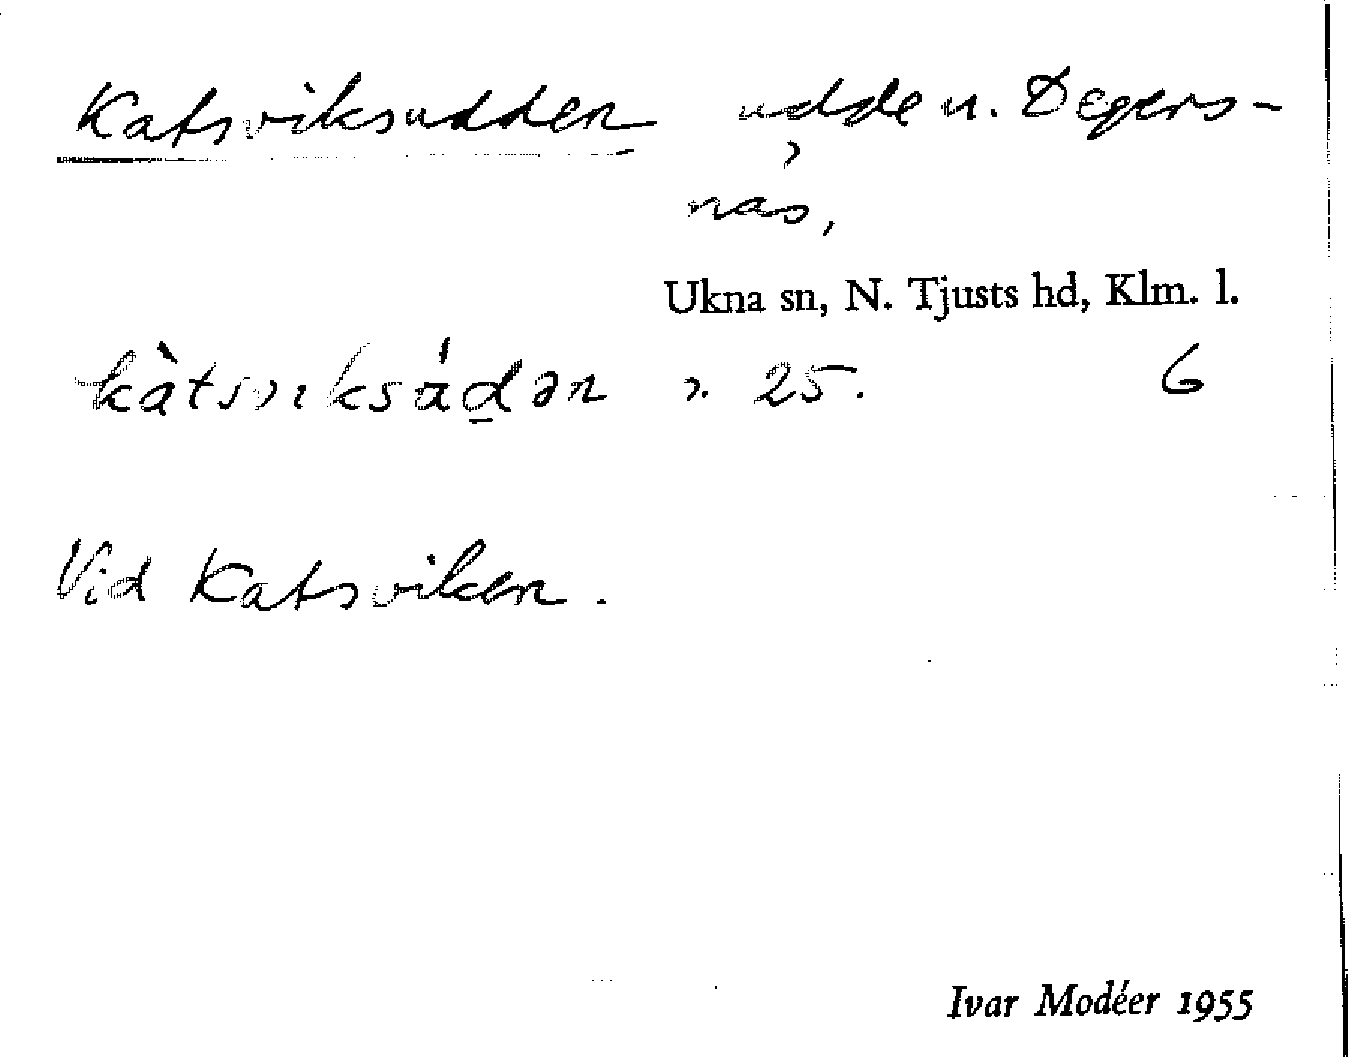 Katsviksudden udde u. Degers-
näs,
Ukna sn, N. Tjusts hd, Klm. l.
kàtsviksádən 25. 6
Vid Katsviken.
Ivar Modéer 1955